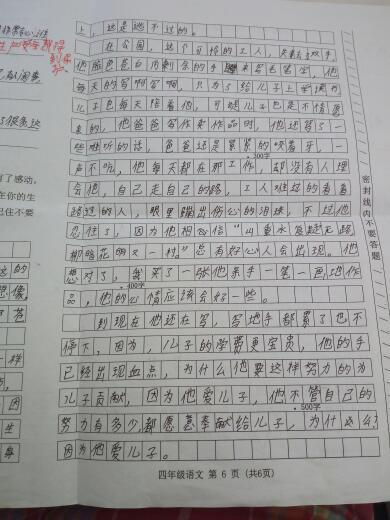 上，这是逃不过的。
在公园，这个可怜的工人，失去右双手，
他脸色苍白用剩余的手来写毛笔字，他
每天的写啊写啊，只为了给儿子上学读书
儿子也每天陪着他，可能儿子也是不情愿
来的，他爸爸写作卖作品时，他还骂了一
些难听的话，爸爸还是默默的咬着牙，一
·300字
声不吭，他每天都在那工作，却没有人理
会他，自己走自己的路，工人难过的看着
路过的人，眼里蹦出伤心的泪珠，不过他
忍住了，因为他相信“山重水复疑无路，
柳暗花明又一村。”总有好心人会出现。他
想对了，我买了一张他亲手一笔一画地作
·400字
品，他的心情应该会好一些。
到现在他还在写，写地手都累了也不
停下，因为，儿子的学费更宝贵，他的手
已经出现血点，为什么他要这样努力的为
儿子贡献，因为他爱儿子，他不管自己的
·500字
努力有多少，都愿意奉献给儿子，为什么？
因为他爱儿子。
四年级语文 第 6 页（共6页）
密封线内不要答题
了感动。
在你的生
记住不要
想像
一样
因
生